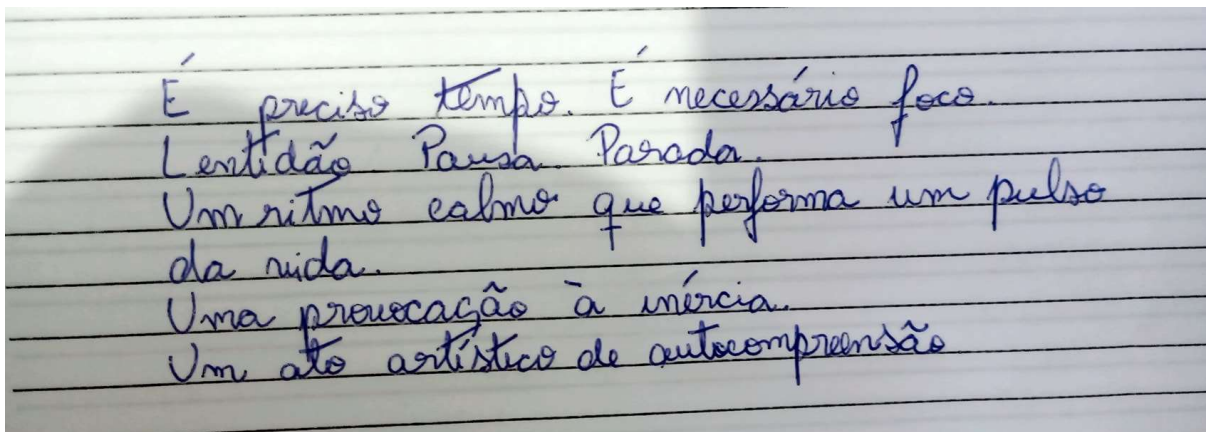 É preciso tempo. É necessário foco.
Lentidão Pausa. Parada.
Um ritmo calmo que performa um pulso
da vida.
Uma provocação à inércia.
Um ato artístico de autocompreensão